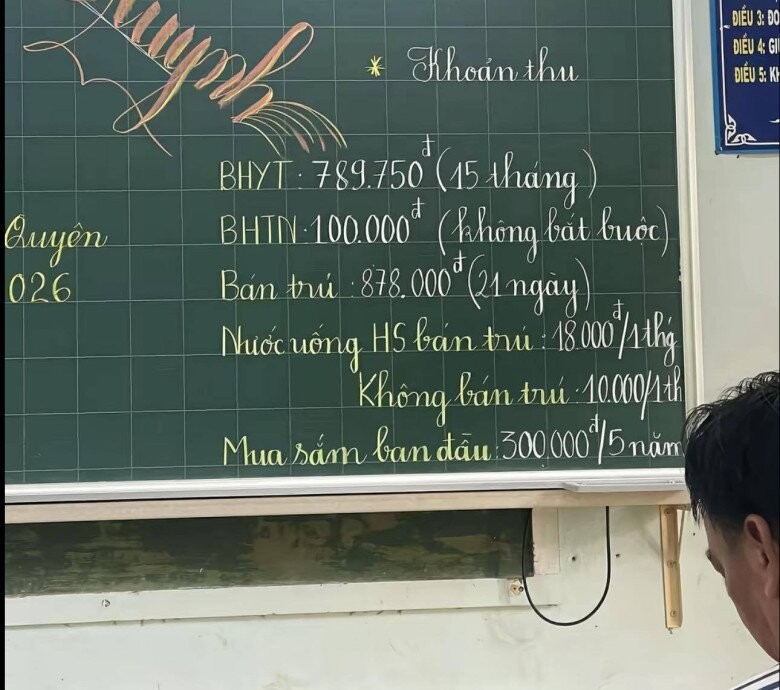 * Khoản thu
BHYT: 789.750đ (15 tháng)
BHTN: 100.000đ (không bắt buộc)
Bán trú: 878.000đ (21 ngày)
Nước uống HS bán trú: 18.000đ/1thg
Không bán trú: 10.000/1th
Mua sắm ban đầu: 300.000đ/5 năm
Quyên
026
ĐIỀU 3: ĐO
ĐIỀU 4: GI
ĐIỀU 5: KH